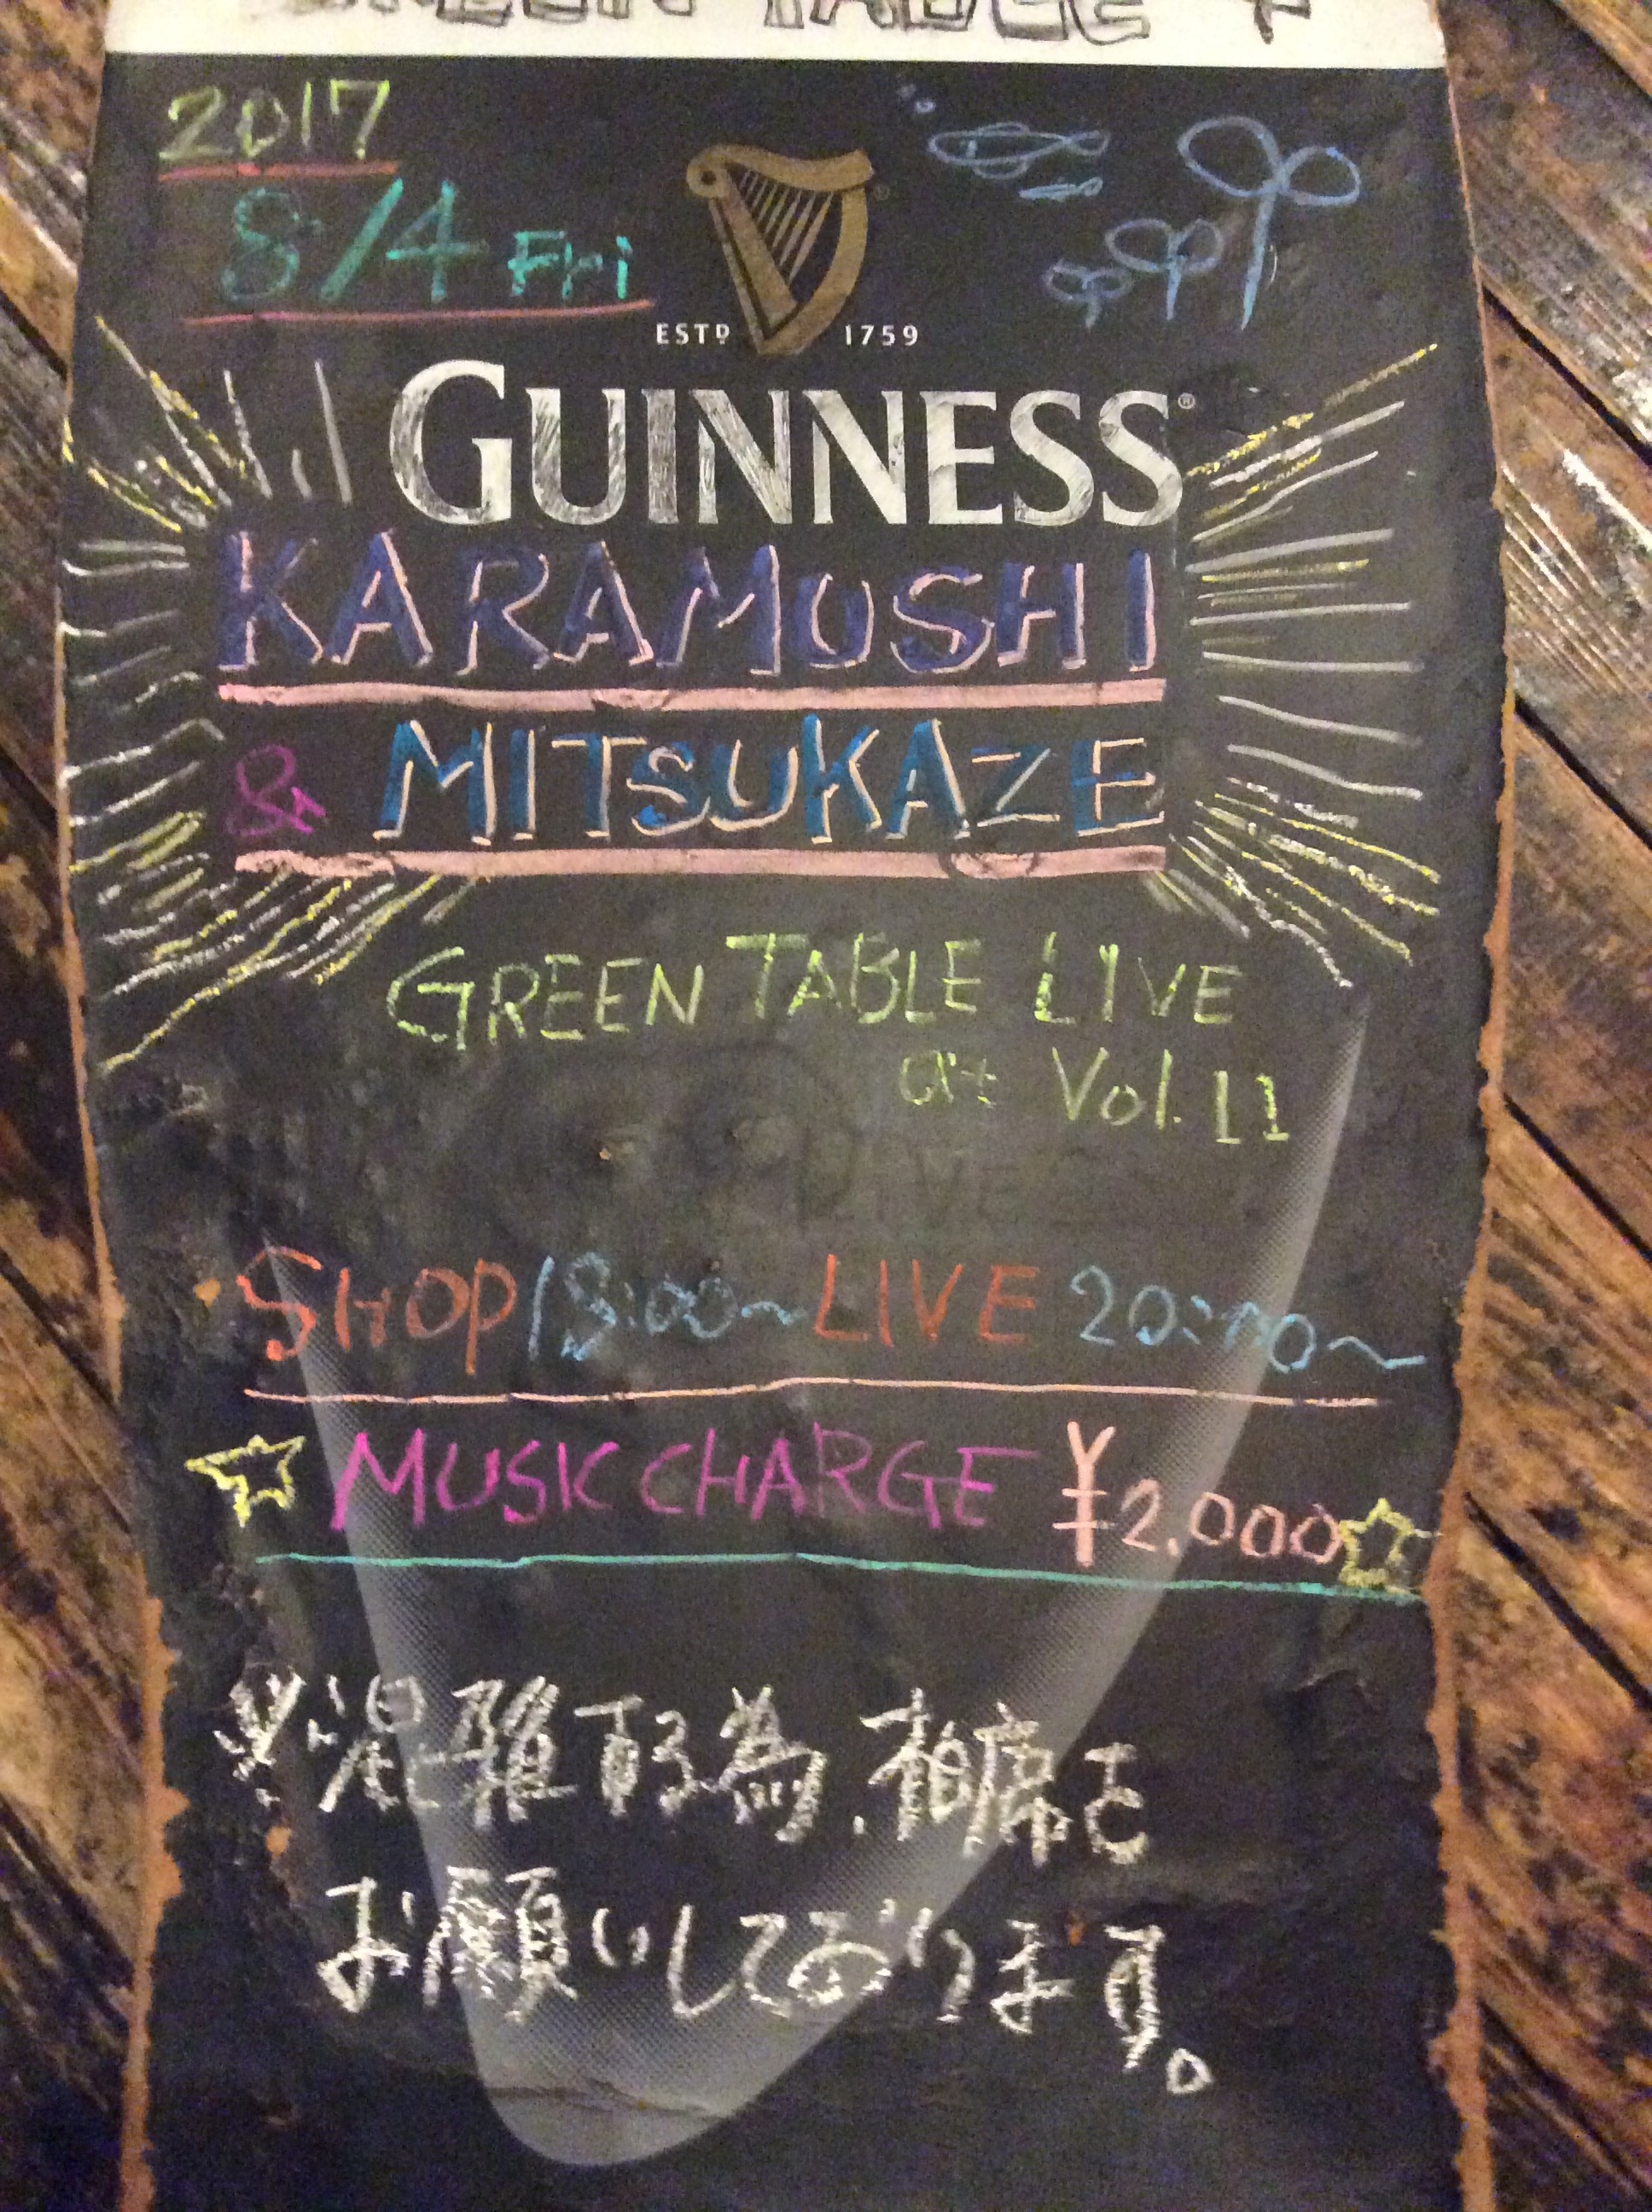 GREEN TABLE +
2017
8/4 Fri
ESTD 1759
GUINNESS®
KARAMUSHI
& MITSUKAZE
GREEN TABLE LIVE
at Vol.11
SHOP 18:00~ LIVE 20:00~
☆ MUSIC CHARGE ¥2,000☆
※混雑する為、相席を
お願いしております。